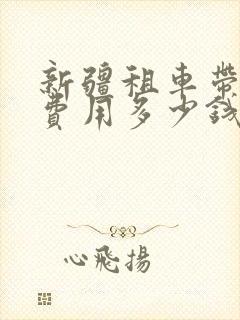 新疆租車帶
費用多少錢
心飛揚